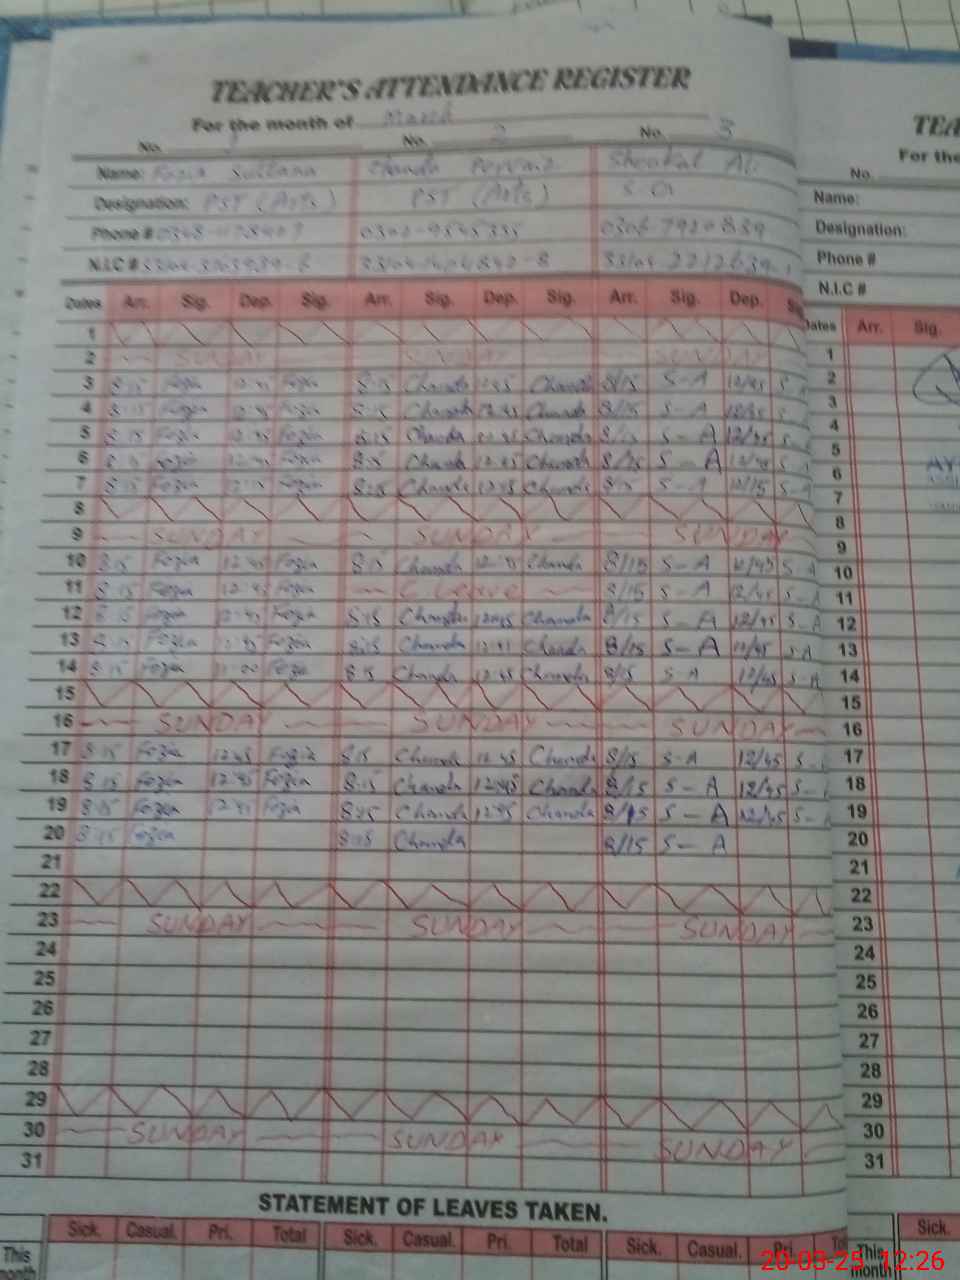 TEACHER'S ATTENDANCE REGISTER
For the month of March
No. 1 No. 2 No. 3
Name: Fozia Sultana Chanda Perveiz Shoukat Ali
Designation: PST (Arts) PST (Arts)
Phone #
N.I.C #
Dates Arr. Sig. Dep. Sig. Arr. Sig. Dep. Sig. Arr. Sig. Dep. Sig.
1
2 SUNDAY SUNDAY SUNDAY
3 8:15 Fozia 12:45 Fozia 8:15 Chanda 12:45 Chanda 8/15 S-A 12/45 S-A
4 8:15 Fozia 12:45 Fozia 8:15 Chanda 12:45 Chanda 8/15 S-A 12/45 S
5 8:15 Fozia 12:45 Fozia 8:15 Chanda 12:45 Chanda 8/15 S-A 12/45 S-A
6 8:15 Fozia 12:45 Fozia 8:15 Chanda 12:45 Chanda 8/15 S-A 12/45 S-A
7 8:15 Fozia Fozia 8:15 Chanda 12:45 Chanda 8/15 S-A 12/15 S-A
8
9 SUNDAY SUNDAY SUNDAY
10 8:15 Fozia 12:45 Fozia 8:15 Chanda 12:45 Chanda 8/15 S-A 12/45 S-A
11 8:15 Fozia 12:45 Fozia C.Leave 8/15 S-A 12/45 S-A
12 8:15 Fozia 12:45 Fozia 8:15 Chanda 12:45 Chanda 8/15 S-A 12/45 S-A
13 8:15 Fozia 12:45 Fozia 8:15 Chanda 12:45 Chanda 8/15 S-A 12/45 S-A
14 8:15 Fozia Fozia 8:15 Chanda 12:45 Chanda 8/15 S-A 12/45 S-A
15
16 SUNDAY SUNDAY SUNDAY
17 8:15 Fozia 12:45 Fozia 8:15 Chanda 12:45 Chanda 8/15 S-A 12/45 S-
18 8:15 Fozia 12:45 Fozia 8:15 Chanda 12:45 Chanda 8/15 S-A 12/45 S-
19 8:15 Fozia 12:45 Fozia 8:15 Chanda 12:45 Chanda 8/15 S-A 12/45 S-A
20 8:15 Fozia 8:15 Chanda 8/15 S-A
21
22
23 SUNDAY SUNDAY SUNDAY
24
25
26
27
28
29
30 SUNDAY SUNDAY SUNDAY
31
STATEMENT OF LEAVES TAKEN.
Sick. Casual. Pri. Total Sick. Casual. Pri. Total Sick. Casual. Pri.
This month
TEA
For the
No.
Name:
Designation:
Phone #
N.I.C #
Dates Arr. Sig.
1
2
3
4
5
6
7
8
9
10
11
12
13
14
15
16
17
18
19
20
21
22
23
24
25
26
27
28
29
30
31
Sick.
This month
20-03-25 12:26